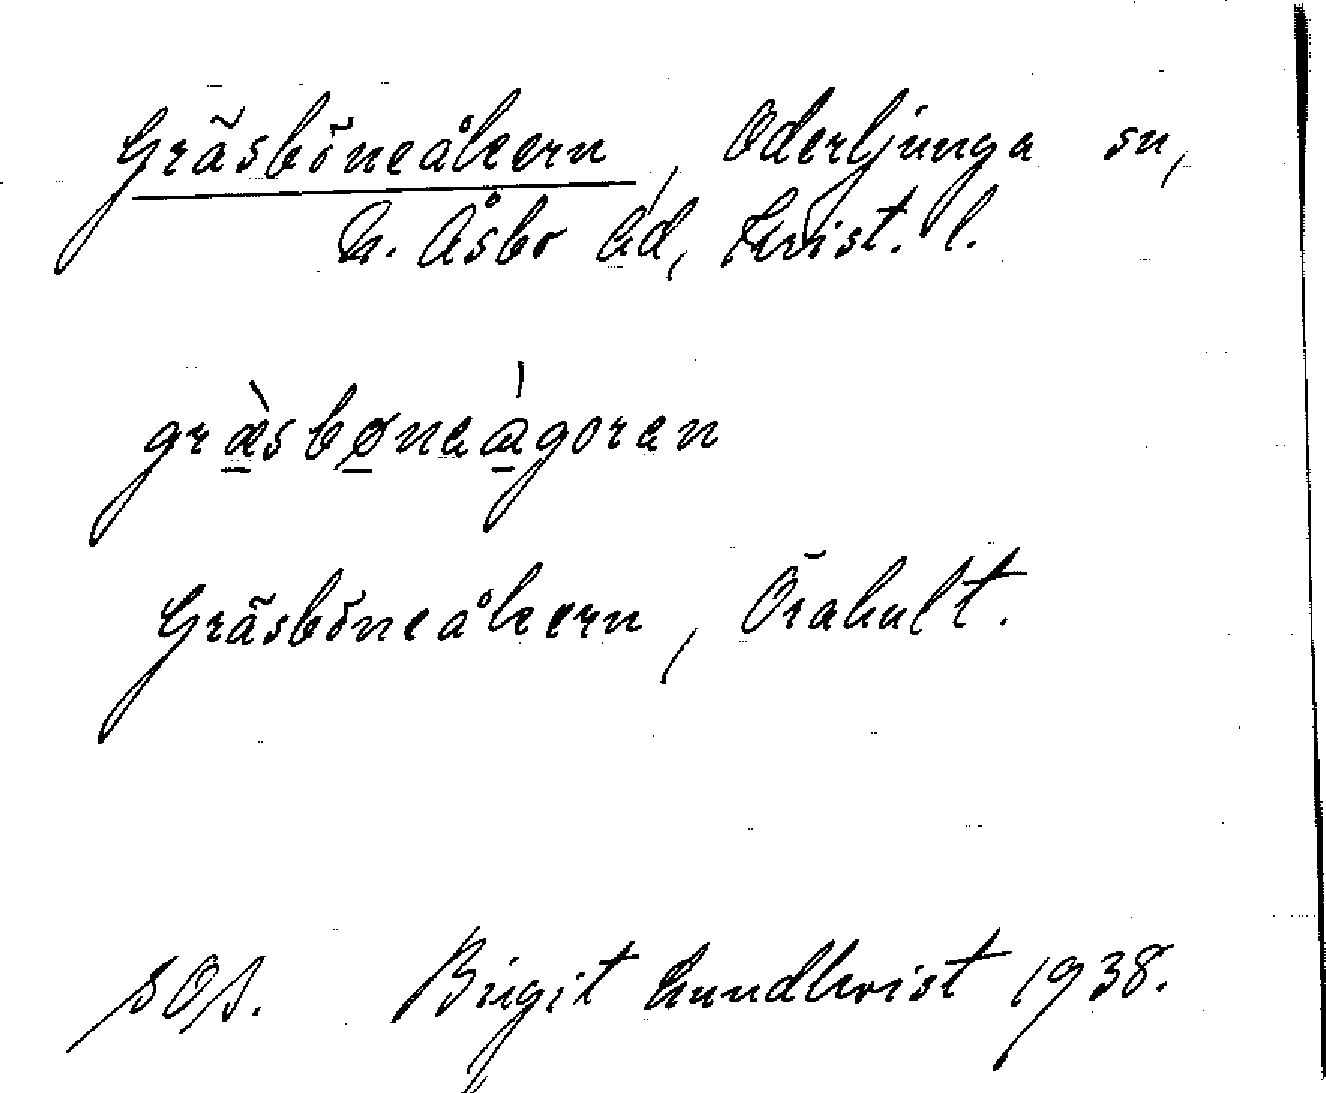 Gräsböneåkern, Oderljunga sn,
N. Åsbo hd, Krist. l.
græ̀sbøneågoren
Gräsböneåkern, Örahult.
SOA. Birgit Lundkvist 1938.